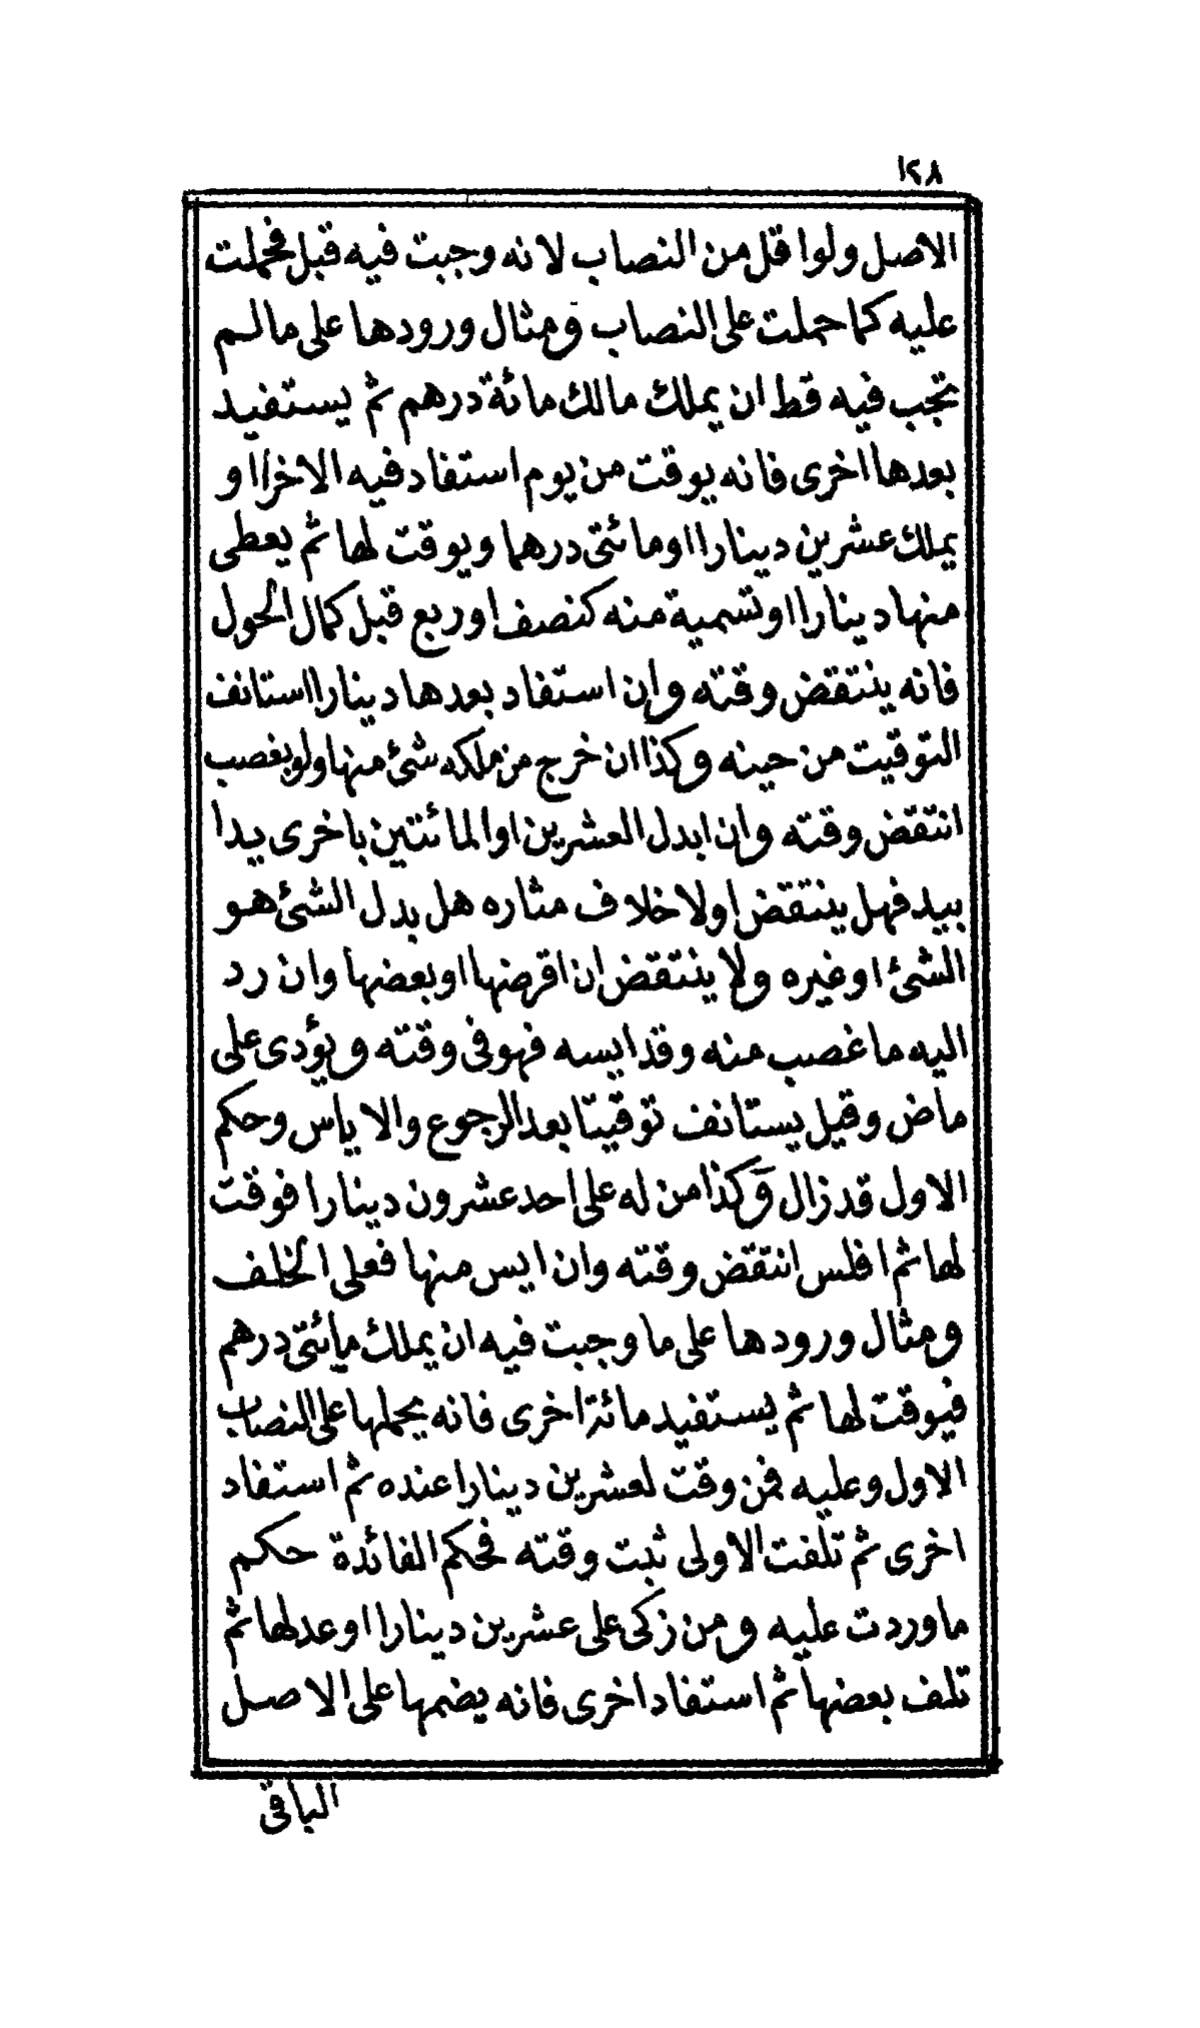 ١٢٨
الاصل ولوا قل من النصاب لانه وجبت فيه قبل فحملت
عليه كما حملت على النصاب ومثال ورودها على ما لم
تجب فيه قط ان يملك مالك مائة درهم ثم يستفيد
بعدها اخرى فانه يوقت من يوم استفاد فيه الاخرا او
يملك عشرين دينارا او مائتى درهما ويوقت لها ثم يعطى
منها دينارا او تسمية منه كنصف او ربع قبل كمال الحول
فانه ينتقض وقته وان استفاد بعدها دينارا استانف
التوقيت من حينه وكذا ان خرج من ملكه شئ منها ولو بغصب
انتقض وقته وان ابدل العشرين او المائتين باخرى يدا
بيد فهل ينتقض اولا خلاف مثاره هل بدل الشئ هو
الشئ او غيره ولا ينتقض ان اقرضها او بعضها وان رد
اليه ما غصب منه وقد ايسه فهو فى وقته ويؤدى على
ماض وقيل يستانف توقيتا بعد الرجوع والاياس وحكم
الاول قد زال وكذا من له على احد عشرون دينارا فوقت
لها ثم افلس انتقض وقته وان ايس منها فعلى الخلف
ومثال ورودها على ما وجبت فيه ان يملك مائتى درهم
فيوقت لها ثم يستفيد مائة اخرى فانه يحملها على النصاب
الاول وعليه فمن وقت لعشرين دينارا عنده ثم استفاد
اخرى ثم تلفت الاولى ثبت وقته فحكم الفائدة حكم
ماوردت عليه ومن زكى على عشرين دينارا او عد لها ثم
تلف بعضها ثم استفاد اخرى فانه يضمها على الاصل
الباقى